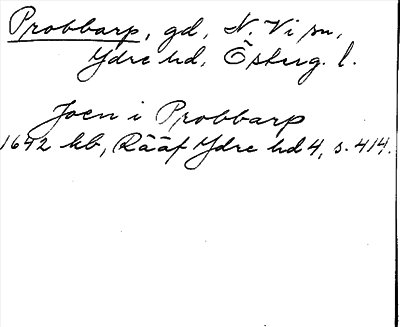 Probbarp, gd, N. Vi sn,
Ydre hd, Östug. l.
Joen i Probbarp
1642 kb, Rääf Ydre hd 4, s. 414.